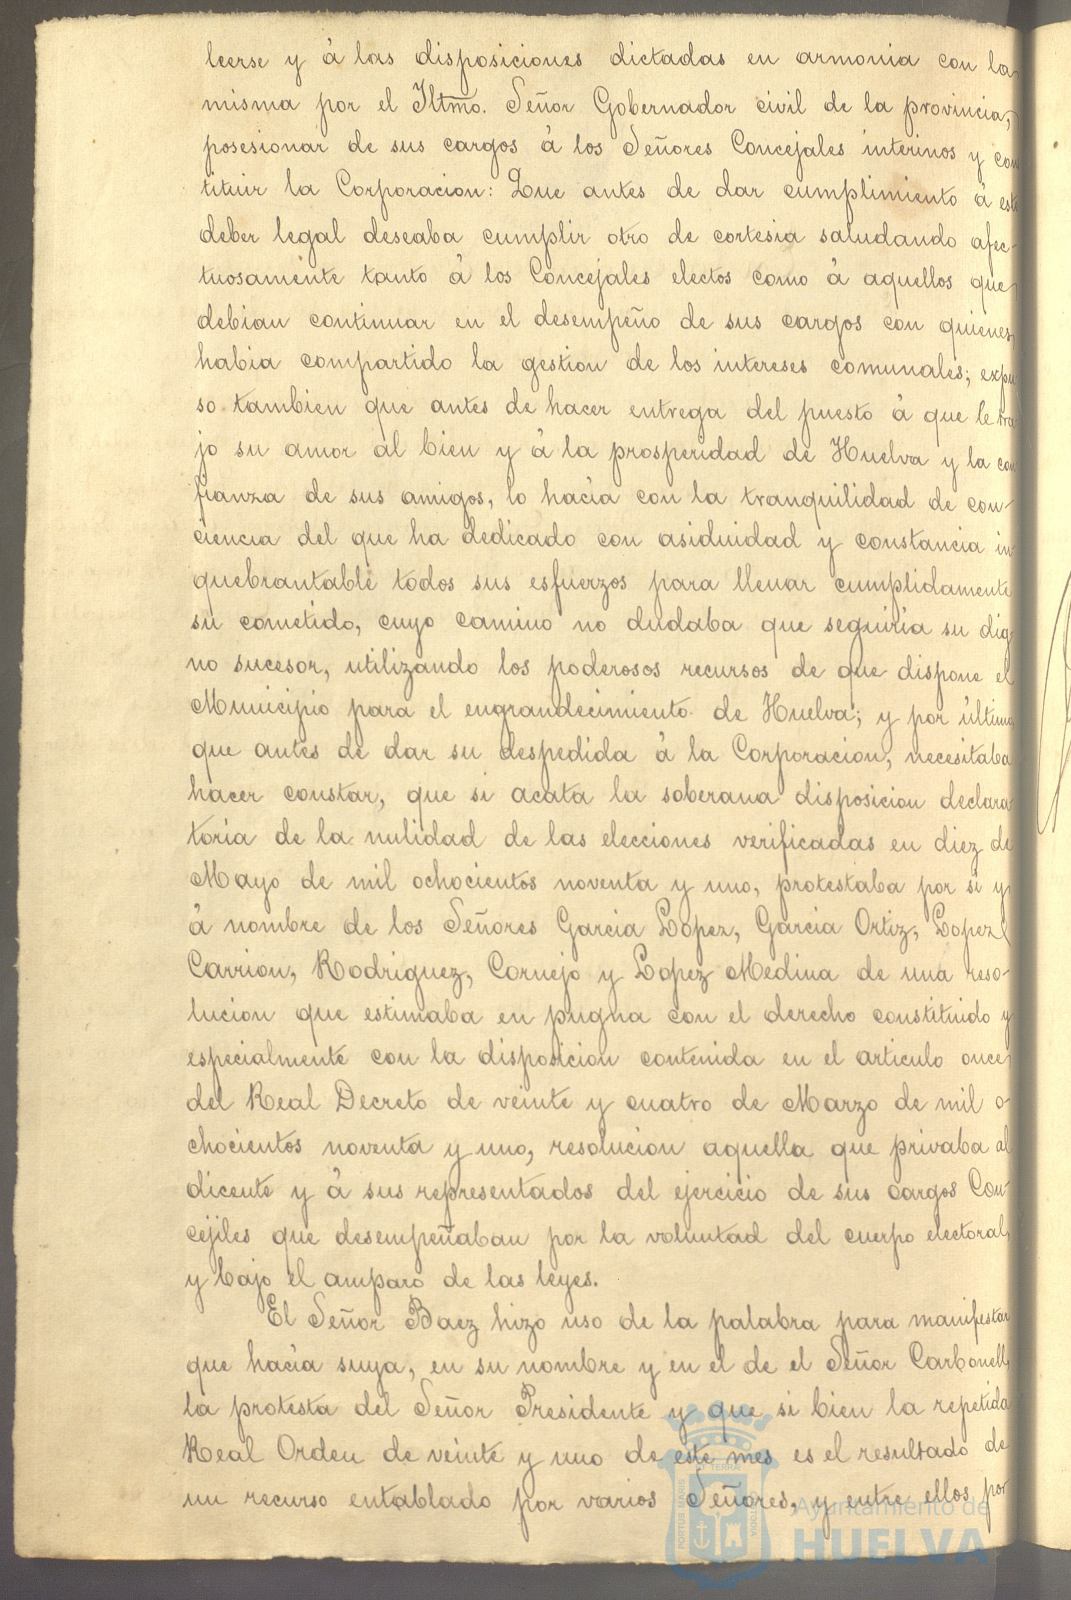 leerse y á las disposiciones dictadas en armonia con la
misma por el Iltmo. Señor Gobernador civil de la provincia,
posesionar de sus cargos á los Señores Concejales interinos y con
tituir la Corporacion: Que antes de dar cumplimiento á este
deber legal deseaba cumplir otro de cortesia saludando afec-
tuosamente tanto á los Concejales electos como á aquellos que
debian continuar en el desempeño de sus cargos con quienes
habia compartido la gestion de los intereses comunales; expu
so tambien que antes de hacer entrega del puesto á que le tra
jo su amor al bien y á la prosperidad de Huelva y la con
fianza de sus amigos, lo hacia con la tranquilidad de con-
ciencia del que ha dedicado con asiduidad y constancia in
quebrantable todos sus esfuerzos para llenar cumplidamente
su cometido, cuyo camino no dudaba que seguiria su dig
no sucesor, utilizando los poderosos recursos de que dispone el
Municipio para el engrandecimiento de Huelva; y por último,
que antes de dar su despedida á la Corporacion, necesitaba
hacer constar, que si acata la soberana disposicion declara
toria de la nulidad de las elecciones verificadas en diez de
Mayo de mil ochocientos noventa y uno, protestaba por si y
á nombre de los Señores Garcia Lopez, Garcia Ortiz, Lopez
Carrion, Rodriguez, Cornejo y Lopez Medina de una reso-
lucion que estimaba en pugna con el derecho constituido y
especialmente con la disposicion contenida en el articulo once
del Real Decreto de veinte y cuatro de Marzo de mil o-
chocientos noventa y uno, resolucion aquella que privaba al
dicente y á sus representados del ejercicio de sus cargos Con-
cejiles que desempeñaban por la voluntad del cuerpo electoral,
y bajo el amparo de las leyes.
El Señor Baez hizo uso de la palabra para manifestar
que hacia suya, en su nombre y en el de el Señor Carbonell,
la protesta del Señor Presidente y que si bien la repetida
Real Orden de veinte y uno de este mes es el resultado de
un recurso entablado por varios Señores, y entre ellos por
Ayuntamiento de
HUELVA
PORTUS MARIS
ET TERRAE
CUSTODIA